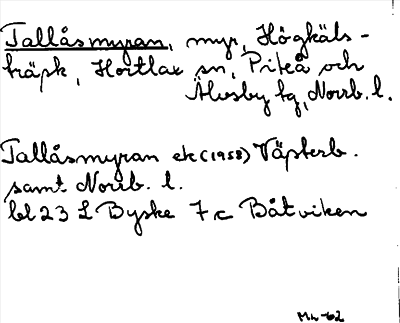 Tallåsmyran, myr, Högkäls-
träsk, Hortlax sn, Piteå och
Älvsby tg, Norrb. l.
Tallåsmyran ek (1958) Västerb.
samt Norrb. l.
bl 23 L Byske 7 c Båtviken